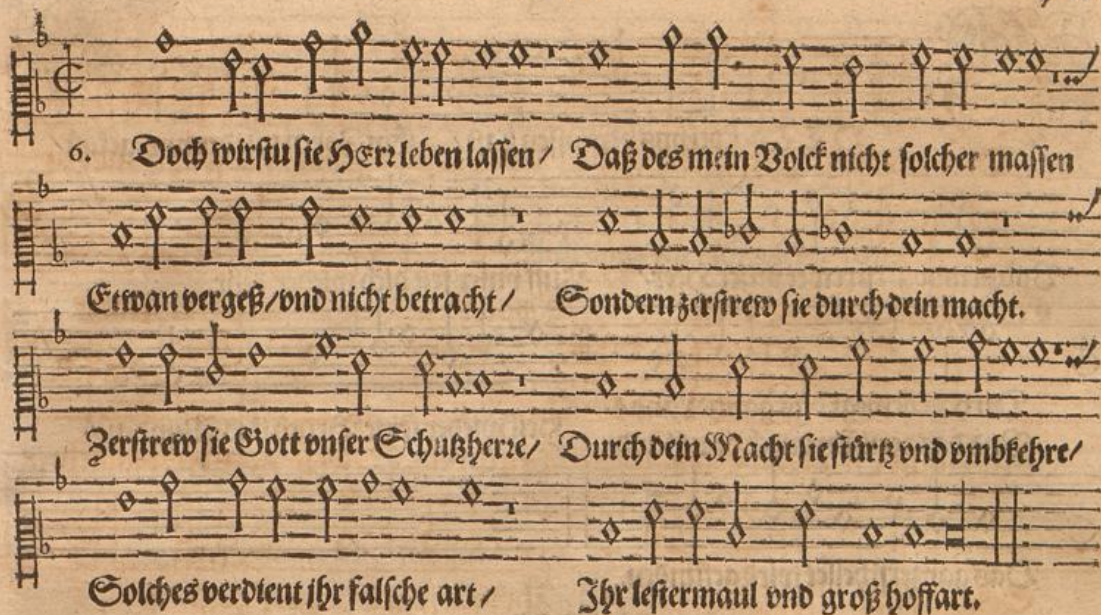 6. Doch wirstu sie HErr leben lassen / Daß des mein Volck nicht solcher massen
Etwan vergeß / vnd nicht betracht / Sondern zerstrew sie durch dein macht.
Zerstrew sie Gott vnser Schutzherre / Durch dein Macht sie stürtz vnd vmbkehre /
Solches verdient jhr falsche art / Jhr lestermaul vnd groß hoffart.